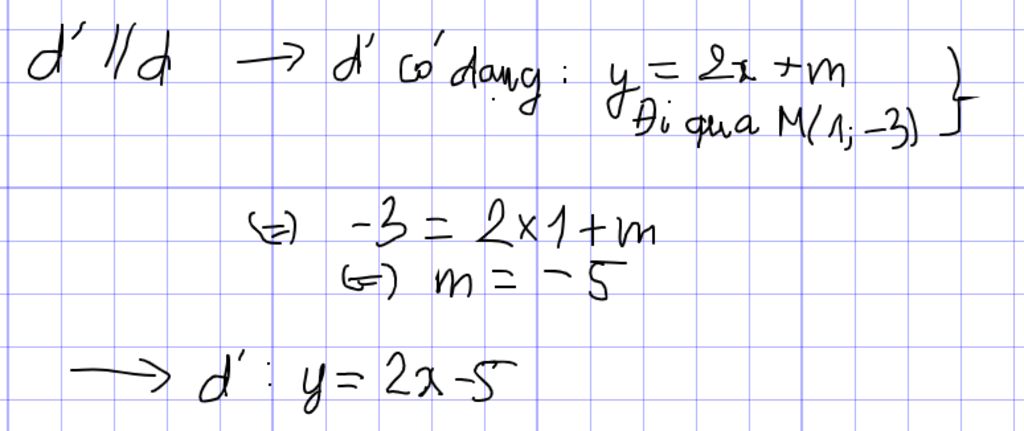 d' // d → d' có dạng : y = 2x + m }
Đi qua M(1; -3)
⇔ -3 = 2 × 1 + m
⇔ m = -5
→ d' : y = 2x - 5